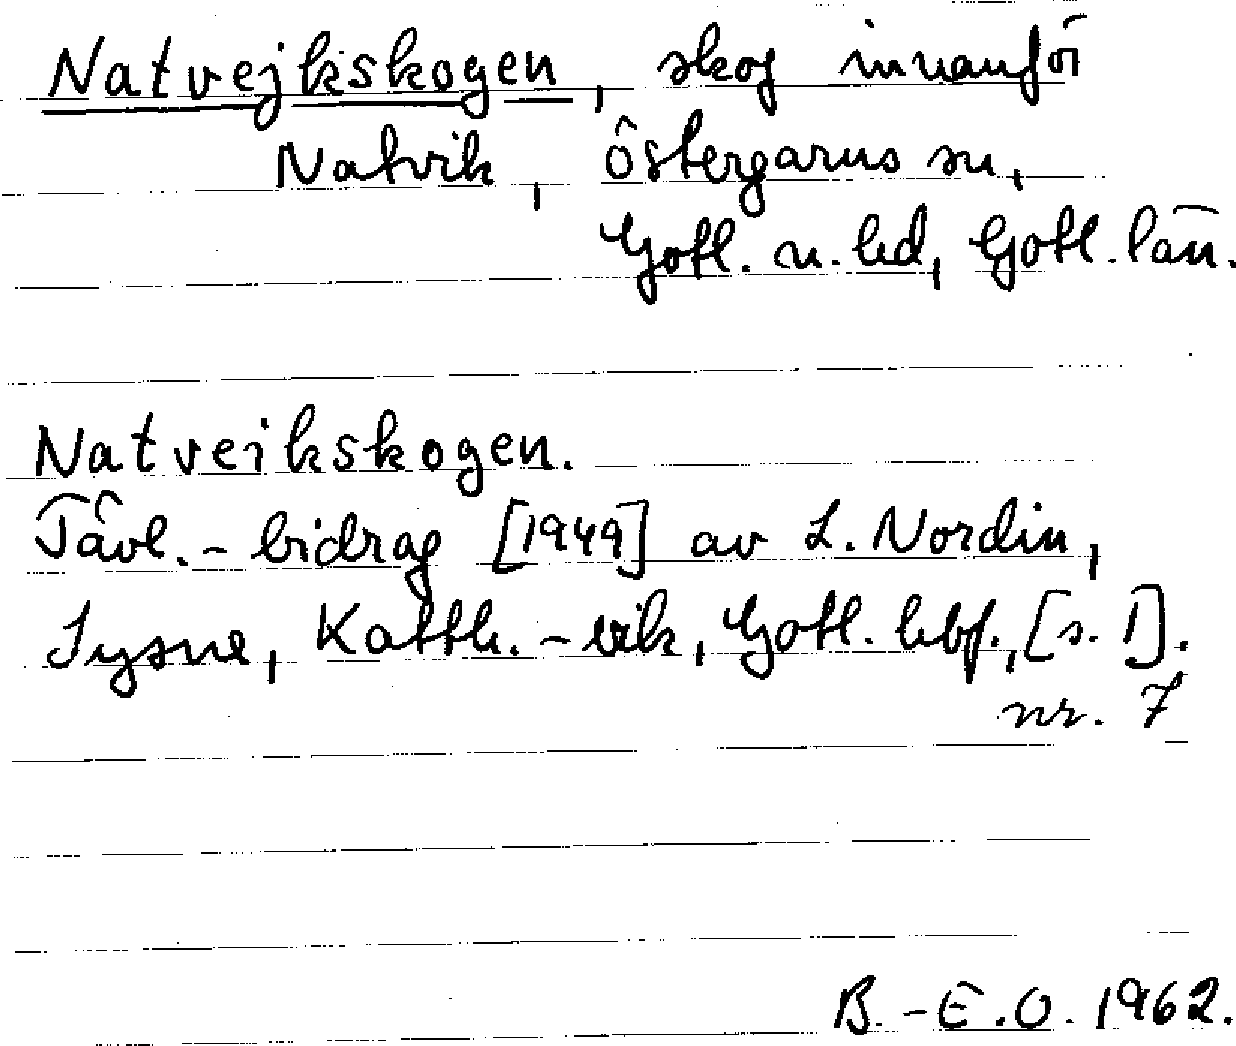 Natvejkskogen, skog innanför
Natvik, Östergarns sn,
Gotl. n. hd, Gotl. län.
Natveikskogen.
Tävl.-bidrag [1949] av L. Nordin,
Sysne, Katth.-vik, Gotl. hbf., [s. 1].
nr. 7
B.-E.O. 1962.